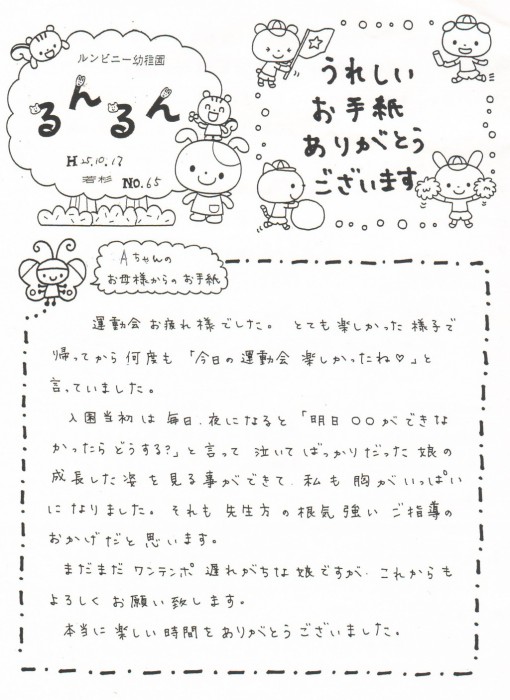 ルンビニー幼稚園
るんるん
H25.10.17
若杉 No.65
うれしい
お手紙
ありがとう
ございます
Aちゃんの
お母様からのお手紙
運動会お疲れ様でした。とても楽しかった様子で
帰ってから何度も「今日の運動会 楽しかったね♡」と
言っていました。
入園当初は毎日、夜になると「明日〇〇ができな
かったらどうする?」と言って泣いてばっかりだった娘の
成長した姿を見る事ができて、私も胸がいっぱい
になりました。それも先生方の根気強いご指導の
おかげだと思います。
まだまだワンテンポ遅れがちな娘ですが、これからも
よろしくお願い致します。
本当に楽しい時間をありがとうございました。